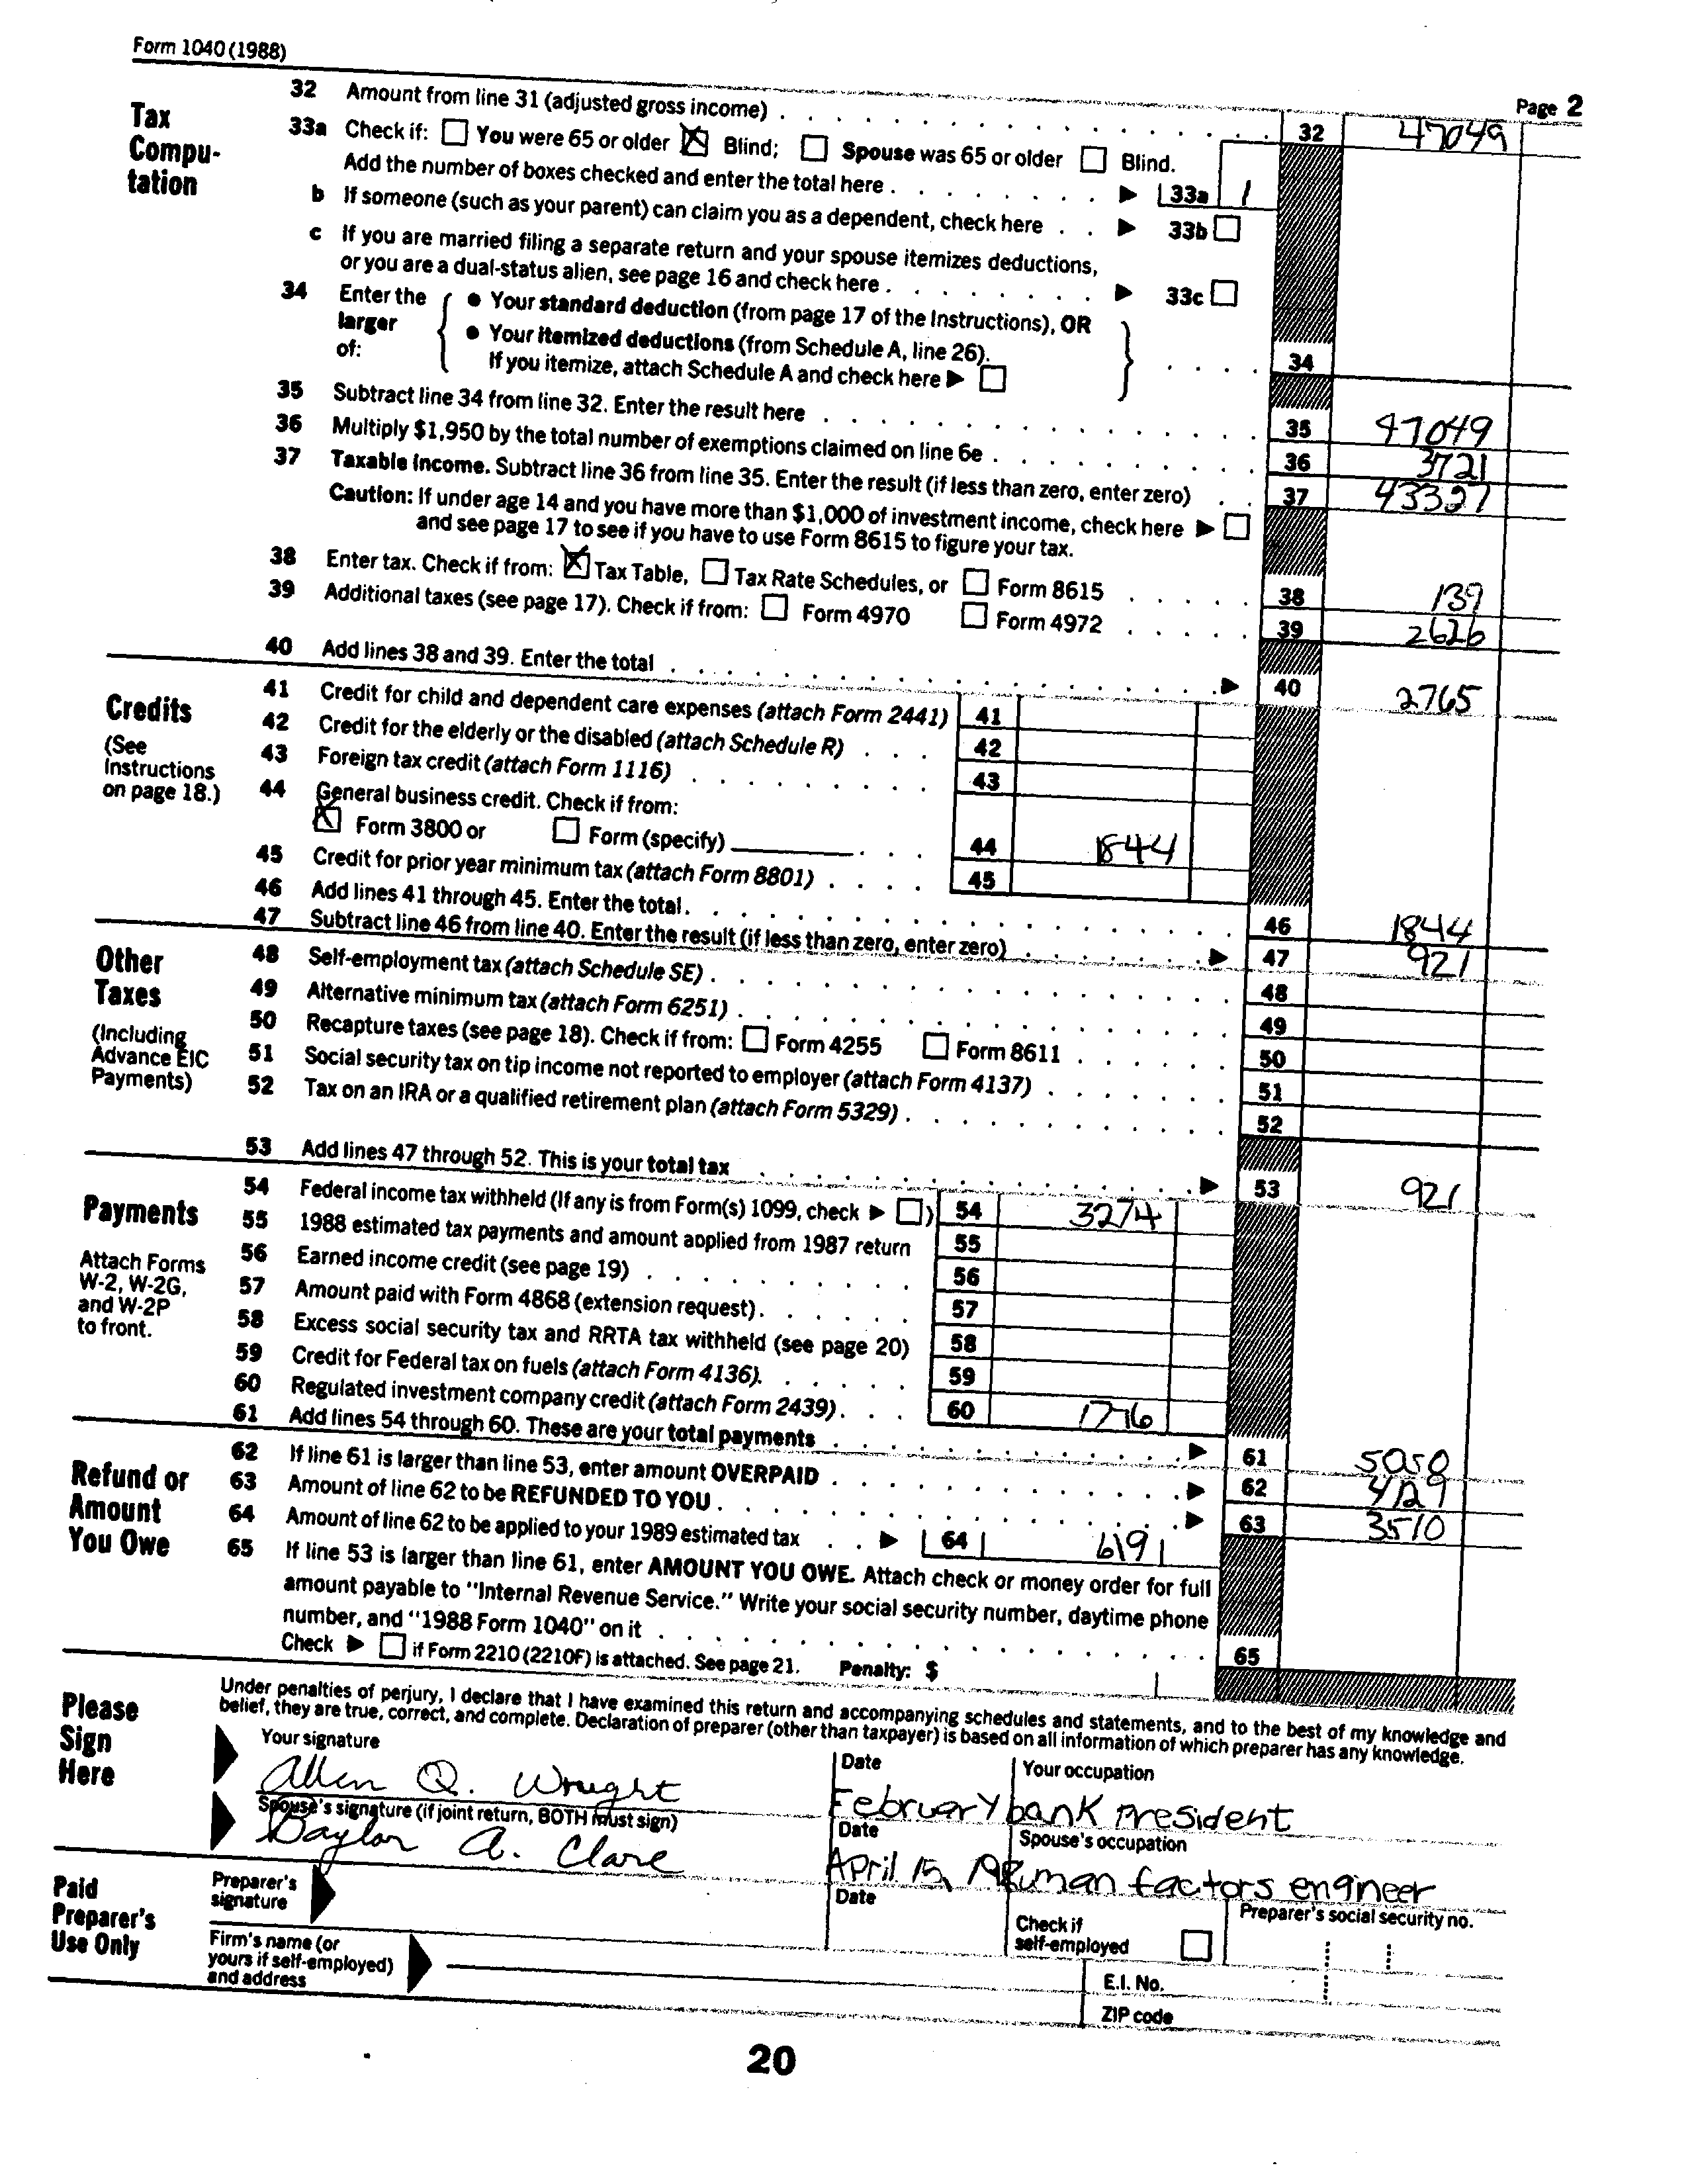 Form 1040 (1988)
Page 2
Tax Compu- tation
32 Amount from line 31 (adjusted gross income) 32 47049
33a Check if: You were 65 or older Blind; Spouse was 65 or older Blind.
Add the number of boxes checked and enter the total here 33a 1
b If someone (such as your parent) can claim you as a dependent, check here 33b
c If you are married filing a separate return and your spouse itemizes deductions,
or you are a dual-status alien, see page 16 and check here 33c
34 Enter the larger of:
• Your standard deduction (from page 17 of the Instructions), OR
• Your itemized deductions (from Schedule A, line 26).
If you itemize, attach Schedule A and check here 34
35 Subtract line 34 from line 32. Enter the result here 35 47049
36 Multiply $1,950 by the total number of exemptions claimed on line 6e 36 3721
37 Taxable income. Subtract line 36 from line 35. Enter the result (if less than zero, enter zero) 37 43327
Caution: If under age 14 and you have more than $1,000 of investment income, check here
and see page 17 to see if you have to use Form 8615 to figure your tax.
38 Enter tax. Check if from: Tax Table, Tax Rate Schedules, or Form 8615 38 139
39 Additional taxes (see page 17). Check if from: Form 4970 Form 4972 39 2626
40 Add lines 38 and 39. Enter the total 40 2765
Credits
(See Instructions on page 18.)
41 Credit for child and dependent care expenses (attach Form 2441) 41
42 Credit for the elderly or the disabled (attach Schedule R) 42
43 Foreign tax credit (attach Form 1116) 43
44 General business credit. Check if from:
Form 3800 or Form (specify) 44 1844
45 Credit for prior year minimum tax (attach Form 8801) 45
46 Add lines 41 through 45. Enter the total 46 1844
47 Subtract line 46 from line 40. Enter the result (if less than zero, enter zero) 47 921
Other Taxes
(Including Advance EIC Payments)
48 Self-employment tax (attach Schedule SE) 48
49 Alternative minimum tax (attach Form 6251) 49
50 Recapture taxes (see page 18). Check if from: Form 4255 Form 8611 50
51 Social security tax on tip income not reported to employer (attach Form 4137) 51
52 Tax on an IRA or a qualified retirement plan (attach Form 5329) 52
53 Add lines 47 through 52. This is your total tax 53 921
Payments
Attach Forms W-2, W-2G, and W-2P to front.
54 Federal income tax withheld (If any is from Form(s) 1099, check ) 54 3274
55 1988 estimated tax payments and amount applied from 1987 return 55
56 Earned income credit (see page 19) 56
57 Amount paid with Form 4868 (extension request) 57
58 Excess social security tax and RRTA tax withheld (see page 20) 58
59 Credit for Federal tax on fuels (attach Form 4136) 59
60 Regulated investment company credit (attach Form 2439) 60 1776
61 Add lines 54 through 60. These are your total payments 61 5050
Refund or Amount You Owe
62 If line 61 is larger than line 53, enter amount OVERPAID 62 4129
63 Amount of line 62 to be REFUNDED TO YOU 63 3510
64 Amount of line 62 to be applied to your 1989 estimated tax 64 619
65 If line 53 is larger than line 61, enter AMOUNT YOU OWE. Attach check or money order for full
amount payable to "Internal Revenue Service." Write your social security number, daytime phone
number, and "1988 Form 1040" on it 65
Check if Form 2210 (2210F) is attached. See page 21. Penalty: $
Please Sign Here
Under penalties of perjury, I declare that I have examined this return and accompanying schedules and statements, and to the best of my knowledge and
belief, they are true, correct, and complete. Declaration of preparer (other than taxpayer) is based on all information of which preparer has any knowledge.
Your signature Date Your occupation
Allen Q. Wright February bank president
Spouse's signature (if joint return, BOTH must sign) Date Spouse's occupation
Baylor A. Clare April 15, human factors engineer
Paid Preparer's Use Only
Preparer's signature Date Check if self-employed Preparer's social security no.
Firm's name (or yours if self-employed) and address E.I. No.
ZIP code
20